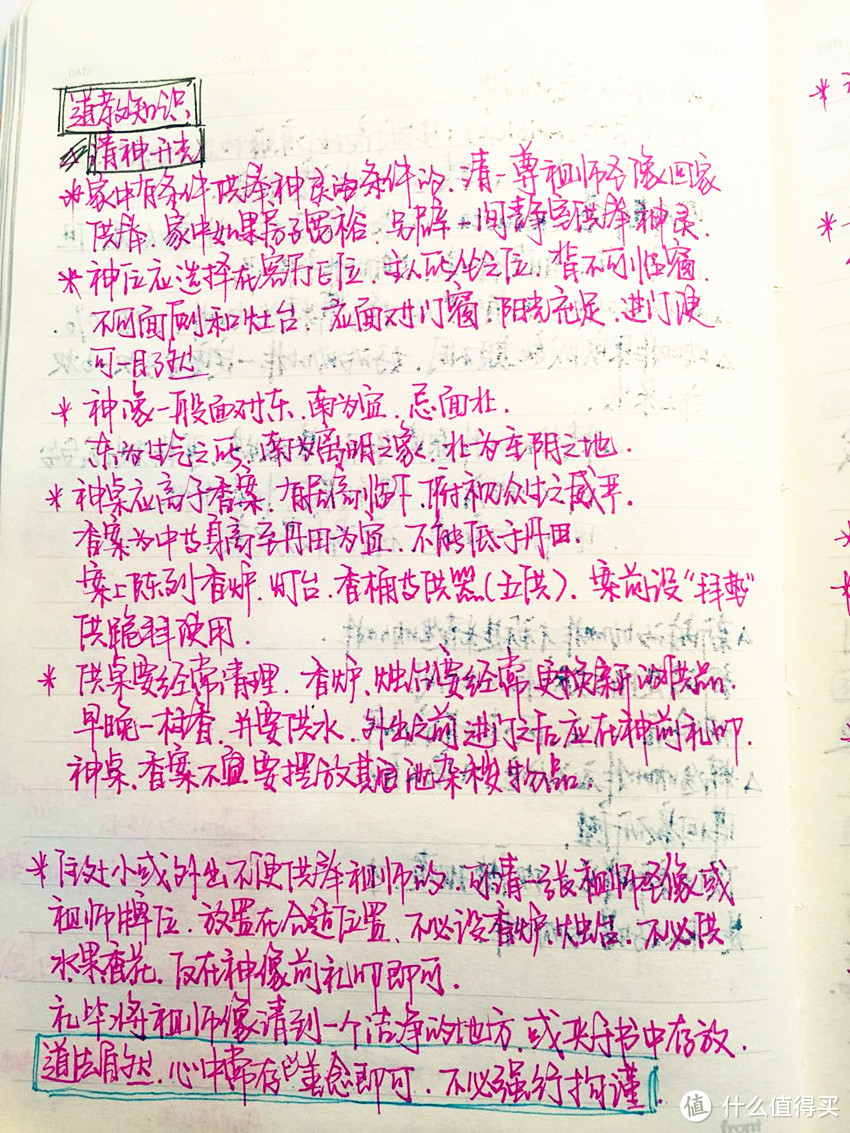 道教知识
请神开光
*家中有条件供奉神灵的条件的.请一尊祖师圣像回家
供奉.家中如果房子宽裕.另辟一间静室供奉神灵.
*神位应选择在客厅上位.主人所坐之位.背不可临窗.
不可面厕和灶台.应面对门窗.阳光充足.进门便
可一目了然
*神像一般面对东.南为宜.忌面北.
东为生气之所.南为离明之象.北为至阴之地.
*神桌应高于香案.有居高临下.俯视众生之威严.
香案为中等身高至丹田为宜.不能低于丹田.
案上陈列香炉.灯台.香桶等供器(五供).案前设“拜垫”
供跪拜使用.
*供桌要经常清理.香炉、烛台要经常更换新的供品.
早晚一柱香.并要供水.外出之前进门之后应在神前礼叩.
神桌.香案不宜要摆放其它杂秽物品.
*住处小或外出不便供奉祖师的.可请一张祖师圣像或
祖师牌位.放置在合适位置、不必设香炉.烛台.不必供
水果香花.反在神像前礼叩即可.
礼毕将祖师像请到一个洁净的地方.或夹于书中存放.
道法自然.心中常存善念即可.不必强行拘谨.
值 什么值得买